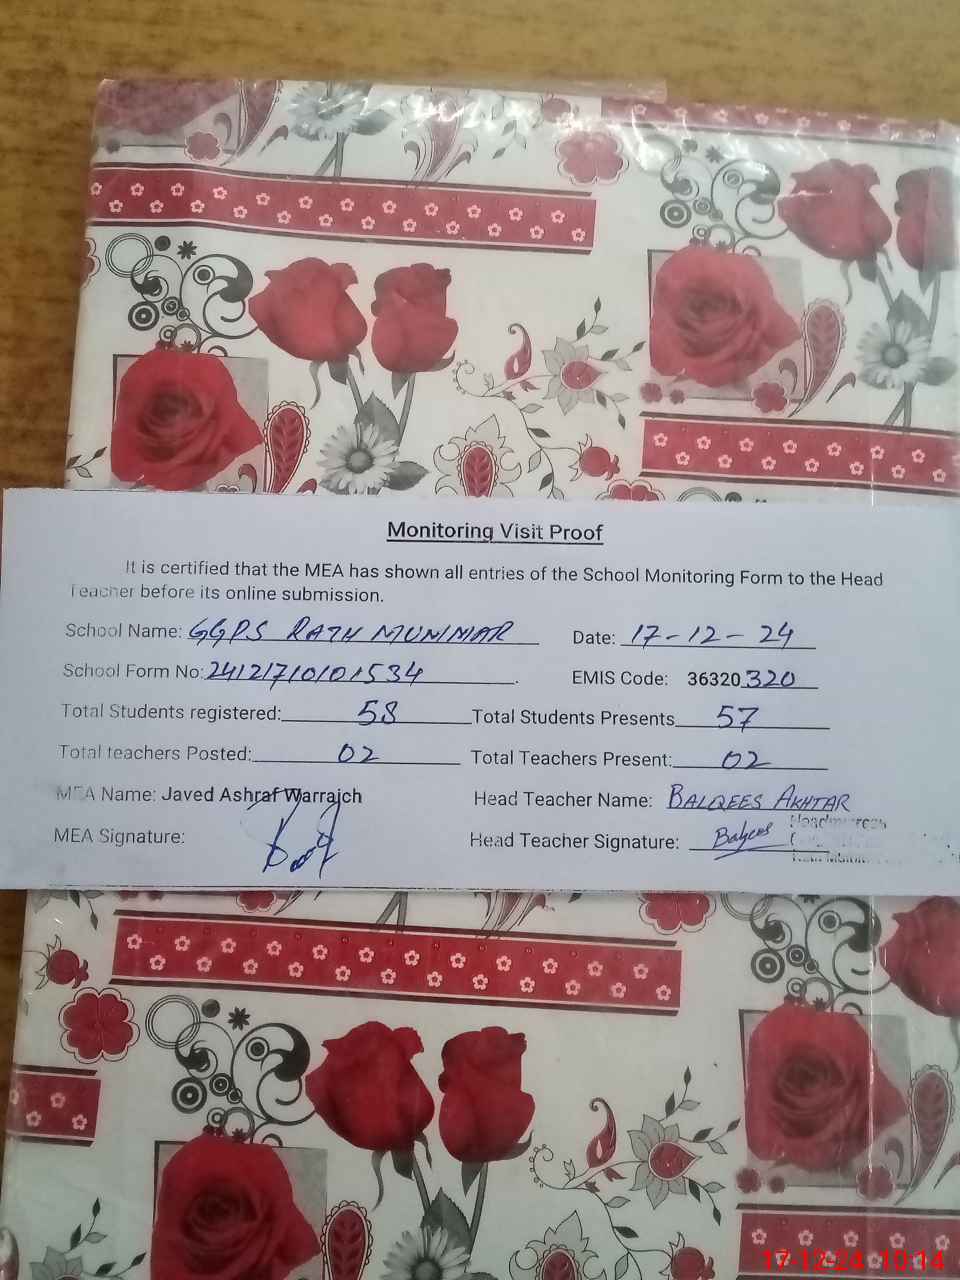 Monitoring Visit Proof
It is certified that the MEA has shown all entries of the School Monitoring Form to the Head
Teacher before its online submission.
School Name: GGPS RATH MUNIMAR Date: 17-12-24
School Form No: 24121710101534 EMIS Code: 36320320
Total Students registered: 58 Total Students Presents 57
Total teachers Posted: 02 Total Teachers Present: 02
MEA Name: Javed Ashraf Warraich Head Teacher Name: BALQEES AKHTAR
MEA Signature: Head Teacher Signature: Balqees
Headmistress
17-12-24 10:14